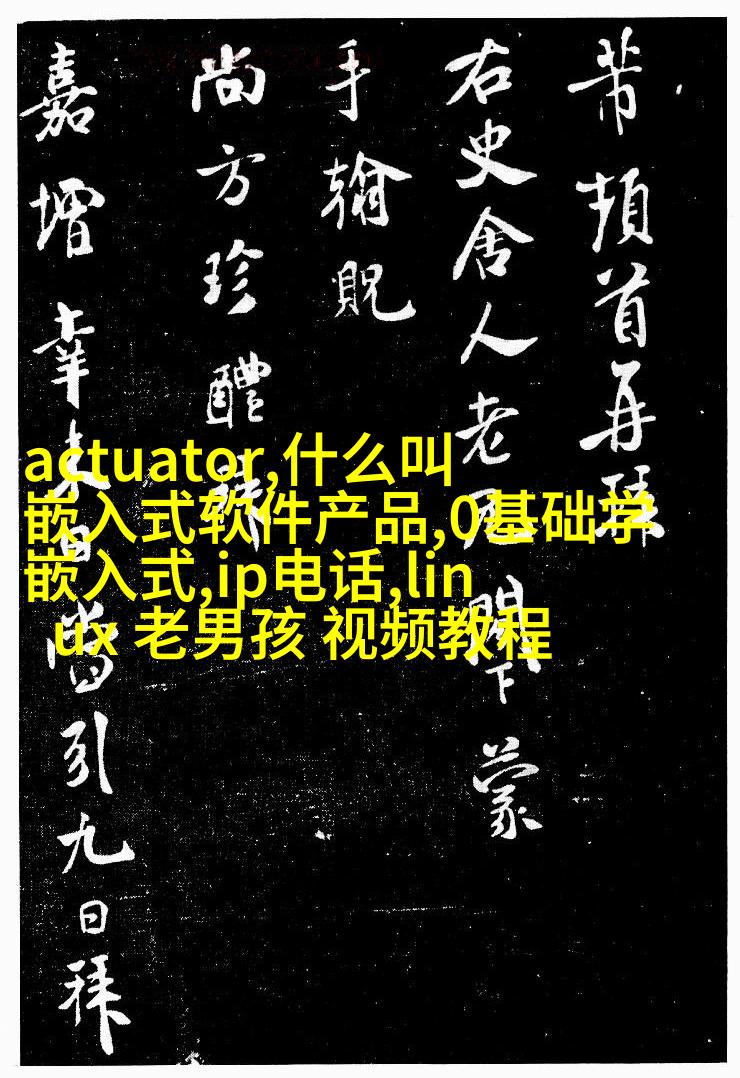 芾頓首再拜
右史舍人老兄閣下蒙
手翰貺
尚方珍醴
嘉增幸當引九日拜
actuator,什么叫
嵌入式软件产品,0基础学
嵌入式,ip电话,lin
ux 老男孩 视频教程